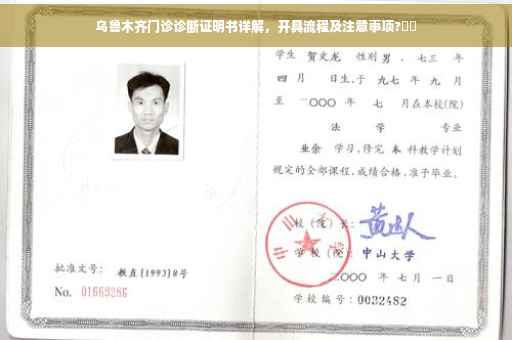 乌鲁木齐门诊诊断证明书详解，开具流程及注意事项?
学生 贺文龙 性别 男 ，七三 年
四 月 日生，于 九七 年 九 月
至 二〇〇〇 年 七 月在本校(院)
法 学 专业
业余 学习，修完 本 科教学计划
规定的全部课程，成绩合格，准予毕业。
校(院)长：
学校(院)： 中山大学
二〇〇〇 年 七 月 一 日
学校编号：0032482
批准文号： 教直[1993]8号
No. 01663286